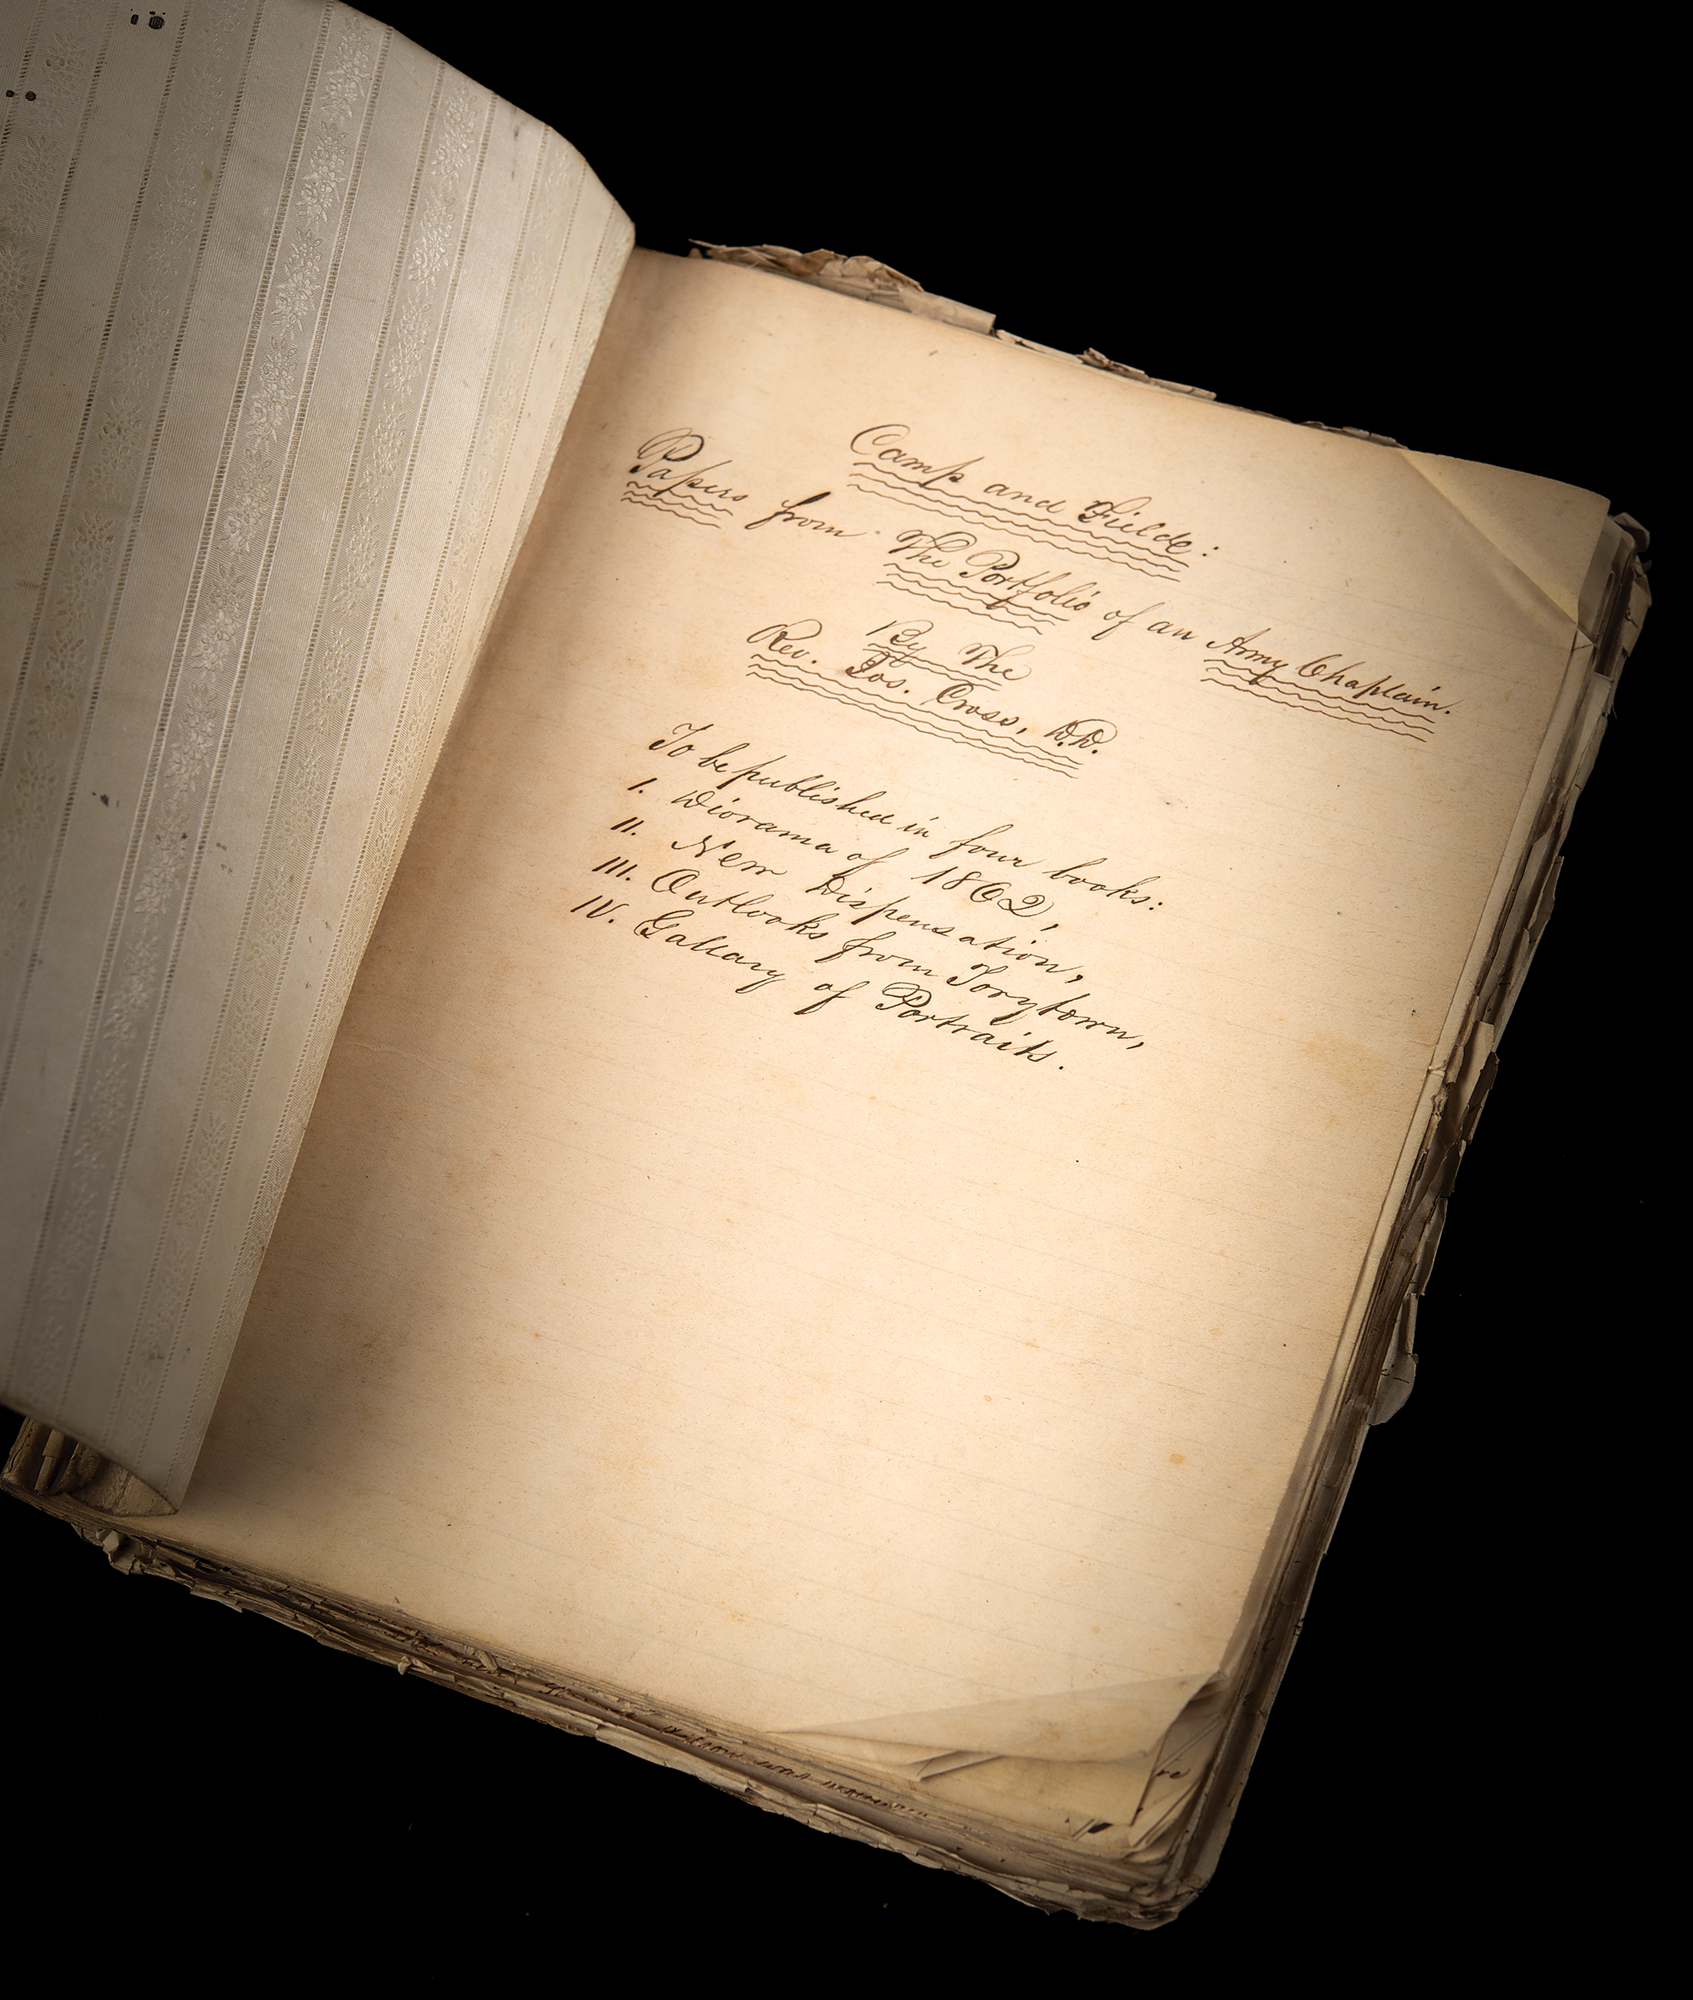 Camp and Field:
Papers from The Portfolio of an Army Chaplain.
By The
Rev. Jos. Cross, D.D.
To be published in four books:
I. Diorama of 1862,
II. New Dispensation,
III. Outlooks from Torytown,
IV. Gallary of Portraits.
was
re